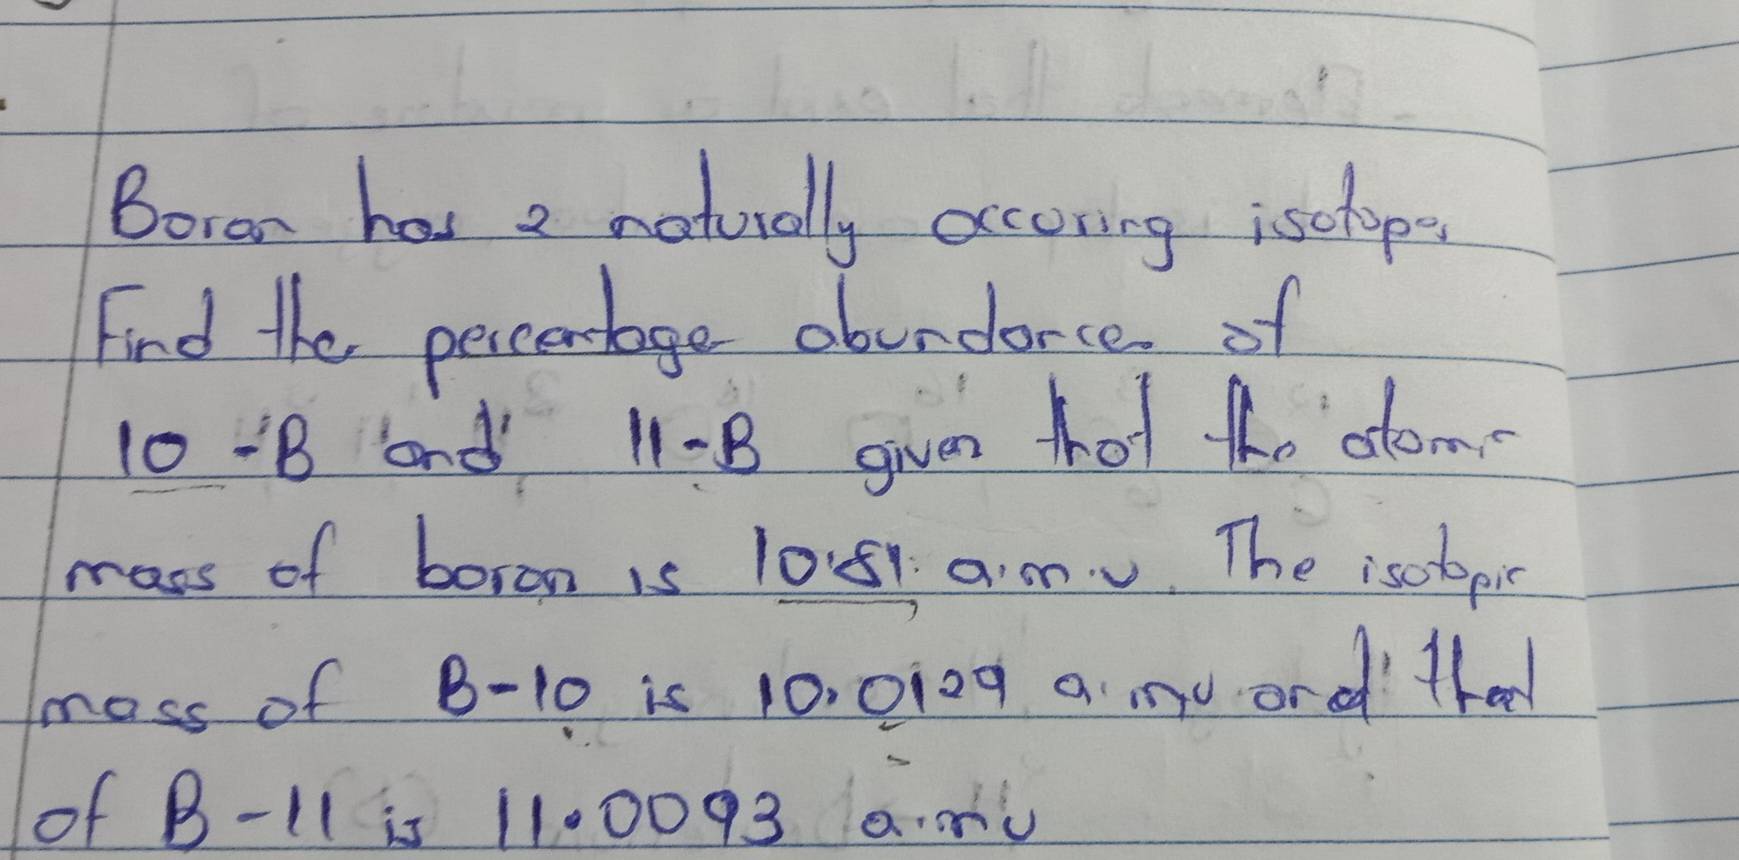 Boron has 2 naturally occuring isotopes
Find the percentage abundance of
10-B and 11-B given that the atomic
mass of boron is 10.81 a.m.u. The isotopic
mass of B-10 is 10.0129 a.mu and that
of B-11 is 11.0093 a.mu